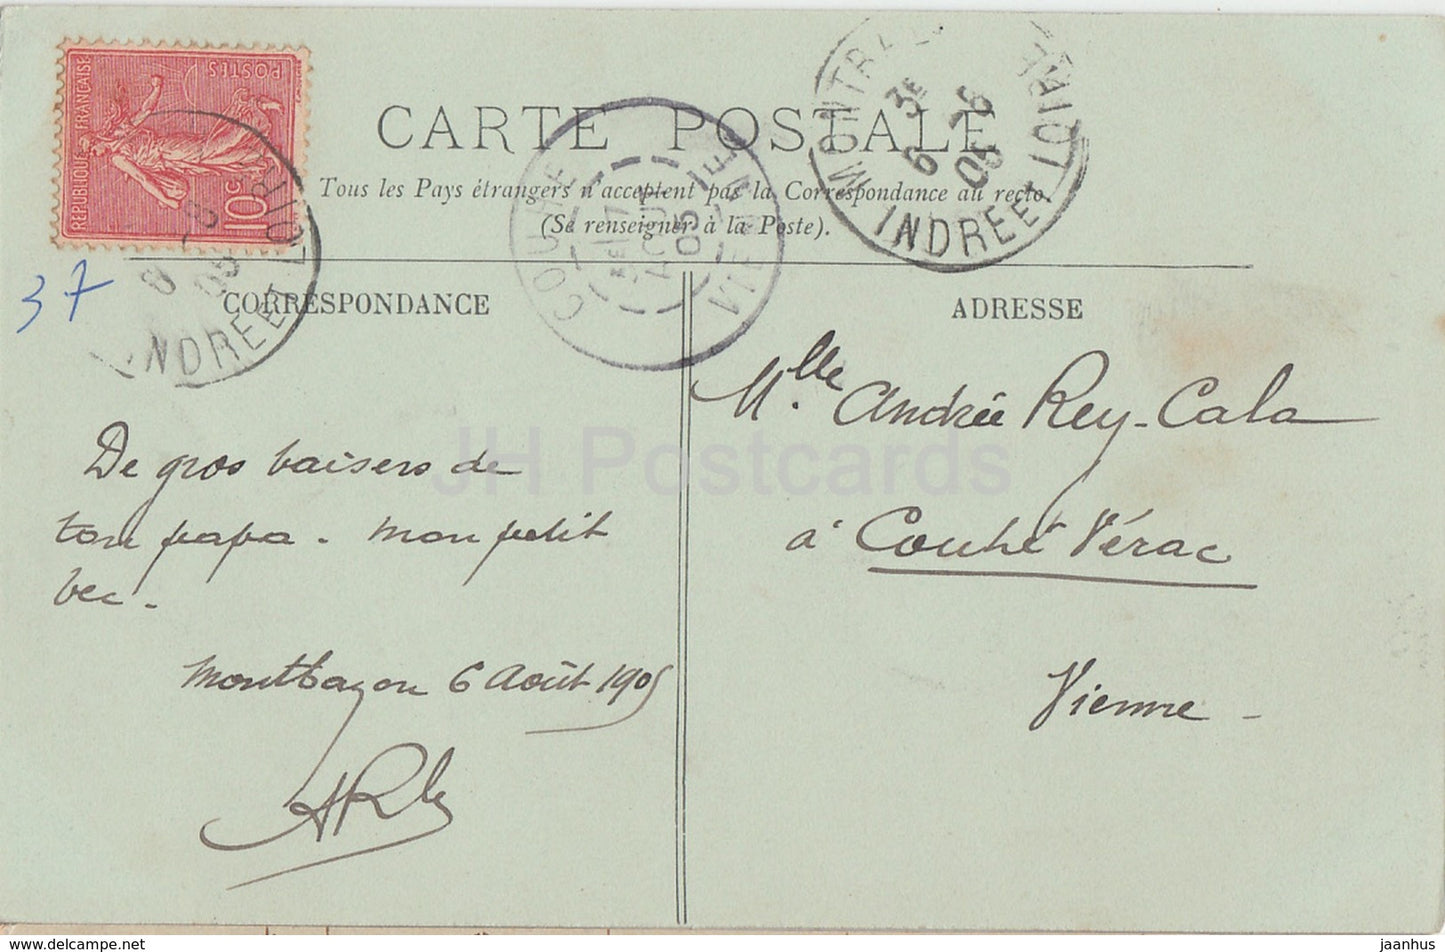 RÉPUBLIQUE FRANÇAISE
POSTES
10c
CARTE POSTALE
Tous les Pays étrangers n'acceptent pas la Correspondance au recto
(Se renseigner à la Poste).
INDRE ET LOIRE
3E
6
05
COUHÉ
VIENNE
AOUT
05
INDRE ET LOIRE
05
37
CORRESPONDANCE
De gros baisers de
ton papa. mon petit
bec.
Montbazon 6 Août 1905
ADRESSE
Mlle Andrée Rey-Cala
à Couhé Vérac
Vienne -
JH Postcards
jaanhus
www.delcampe.net